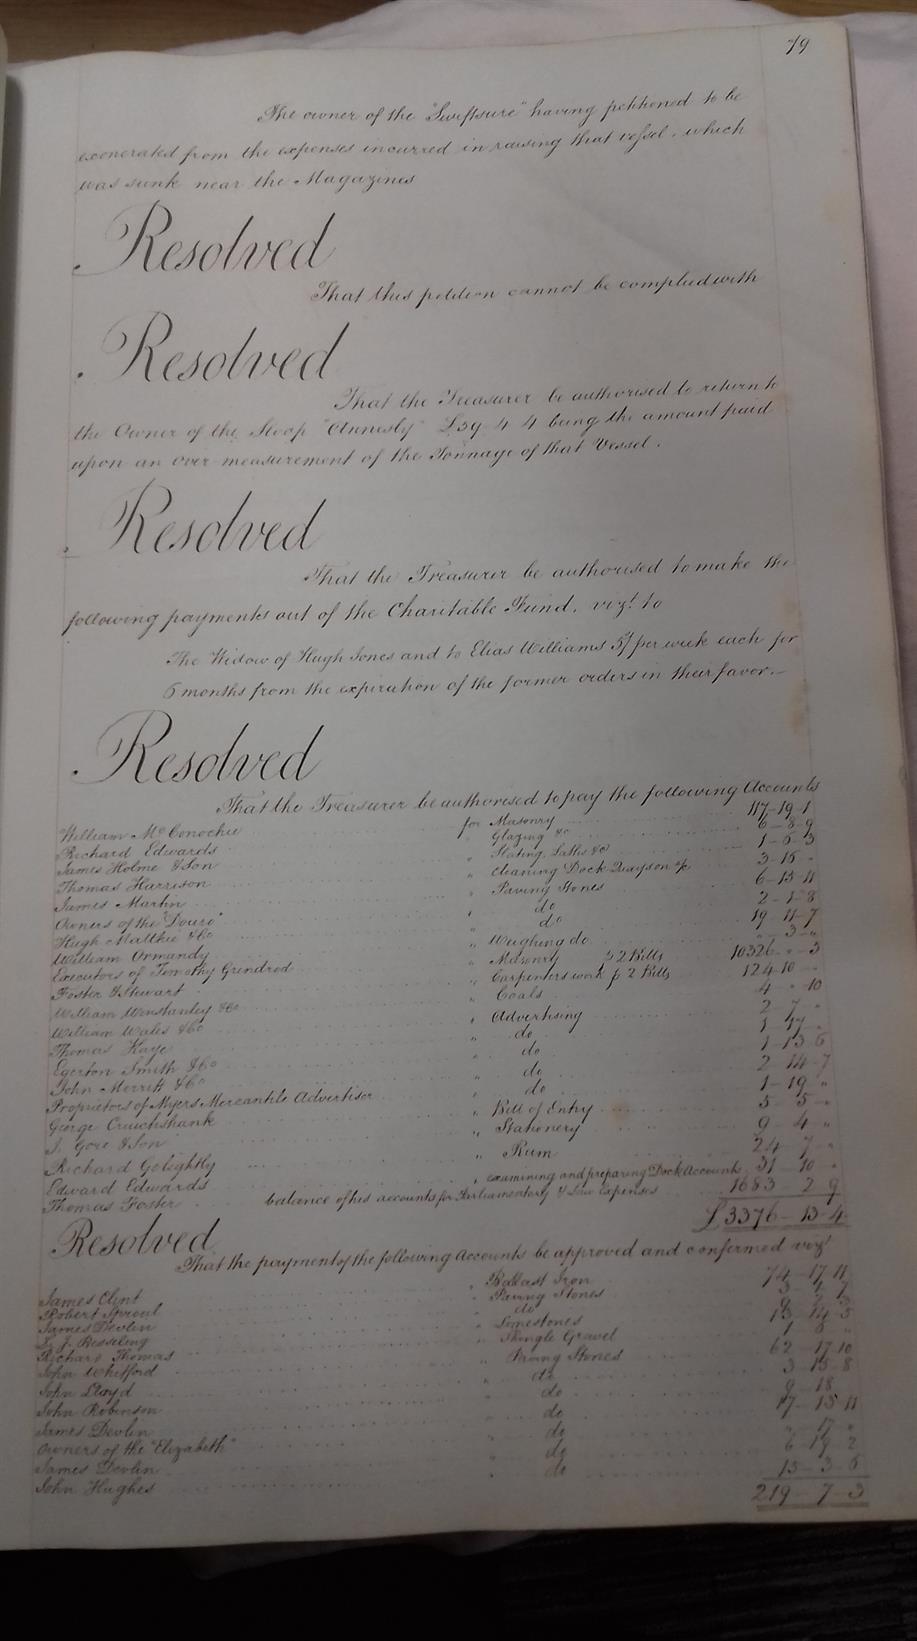 79
The owner of the "Swiftsure" having petitioned to be
exonerated from the expenses incurred in raising that vessel, which
was sunk near the Magazines
Resolved
That this petition cannot be complied with
Resolved
That the Treasurer be authorised to return to
the Owner of the Sloop "Annesly" £39 4 4 being the amount paid
upon an over measurement of the Tonnage of that Vessel.
Resolved
That the Treasurer be authorised to make the
following payments out of the Charitable Fund, vizt. to
The Widow of Hugh Jones and to Elias Williams 5/ per week each for
6 months from the expiration of the former orders in their favor.—
Resolved
That the Treasurer be authorised to pay the following Accounts
William McConochie for Masonry 117-19-1
Richard Edwards " Glazing &c 6-8-9
James Holme & Son " Slating, Laths &c 1-5-3
Thomas Harrison " Cleaning Dock Quays on a/c 3-15-"
James Martin " Paving Stones 6-13-11
Owners of the "Douro" " do 2-1-8
Hugh Matthie &Co " do 19-11-7
William Ormandy " Weighing do "-3-"
Executors of Timothy Grindrod " Masonry p 2 Bills 1032 6-"-3
Foster & Stewart " Carpenters work p 2 Bills 124-10-"
William Winstanley &Co " Coals 4-"-10
William Wales &Co " Advertising 2-7-"
Thomas Kaye " do 1-17-"
Egerton Smith &Co " do 1-13-6
John Merritt &Co " do 2-14-7
Proprietors of Myers Mercantile Advertiser " do 1-19-"
George Cruickshank " Bill of Entry 5-5-"
J. Gore & Son " Stationery 9-4-"
Richard Golightly " Rum 24-7-"
Edward Edwards " examining and preparing Dock Accounts 31-10-"
Thomas Foster balance of his accounts for Parliamentary & Law Expenses 1683-2-9
£3376-13-4
Resolved
That the payment of the following Accounts be approved and confirmed vizt
James Clint " Ballast Iron 74-17-11
Robert Sproul " Paving Stones 3-4-7
James Devlin " do 2-3
" Limestones 13-14-3
Richard Thomas " Shingle Gravel 1
John Whifford " Paving Stones 62-17-10
John Lloyd " do 3-15-8
John Robinson " do 9-18
James Devlin " do 17-15-11
Owners of the "Elizabeth" " do "-17-"
James Devlin " do 6-19-2
John Hughes " do 15-3-6
219-7-3